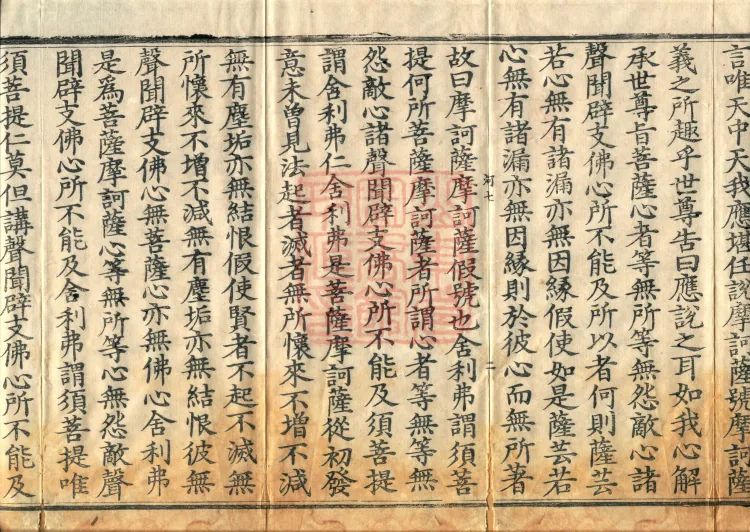 言唯天中天我應堪任說摩訶薩號摩訶薩
義之所趣乎世尊告曰應說之耳如我心解
承世尊旨菩薩心者等無所等無怨敵心諸
聲聞辟支佛心所不能及所以者何則薩芸
若心無有諸漏亦無因緣假使如是薩芸若
心無有諸漏亦無因緣則於彼心而無所著
河七 二
故曰摩訶薩摩訶薩假號也舍利弗謂須菩
提何所菩薩摩訶薩者所謂心者等無等無
怨敵心諸聲聞辟支佛心所不能及須菩提
謂舍利弗仁舍利弗是菩薩摩訶薩從初發
意未曾見法起者滅者無所懷來不增不減
無有塵垢亦無結恨假使賢者不起不滅無
所懷來不增不減無有塵垢亦無結恨彼無
聲聞辟支佛心無菩薩心亦無佛心舍利弗
是爲菩薩摩訶薩心等無所等心無怨敵聲
聞辟支佛心所不能及舍利弗謂須菩提唯
須菩提仁莫但講聲聞辟支佛心所不能及